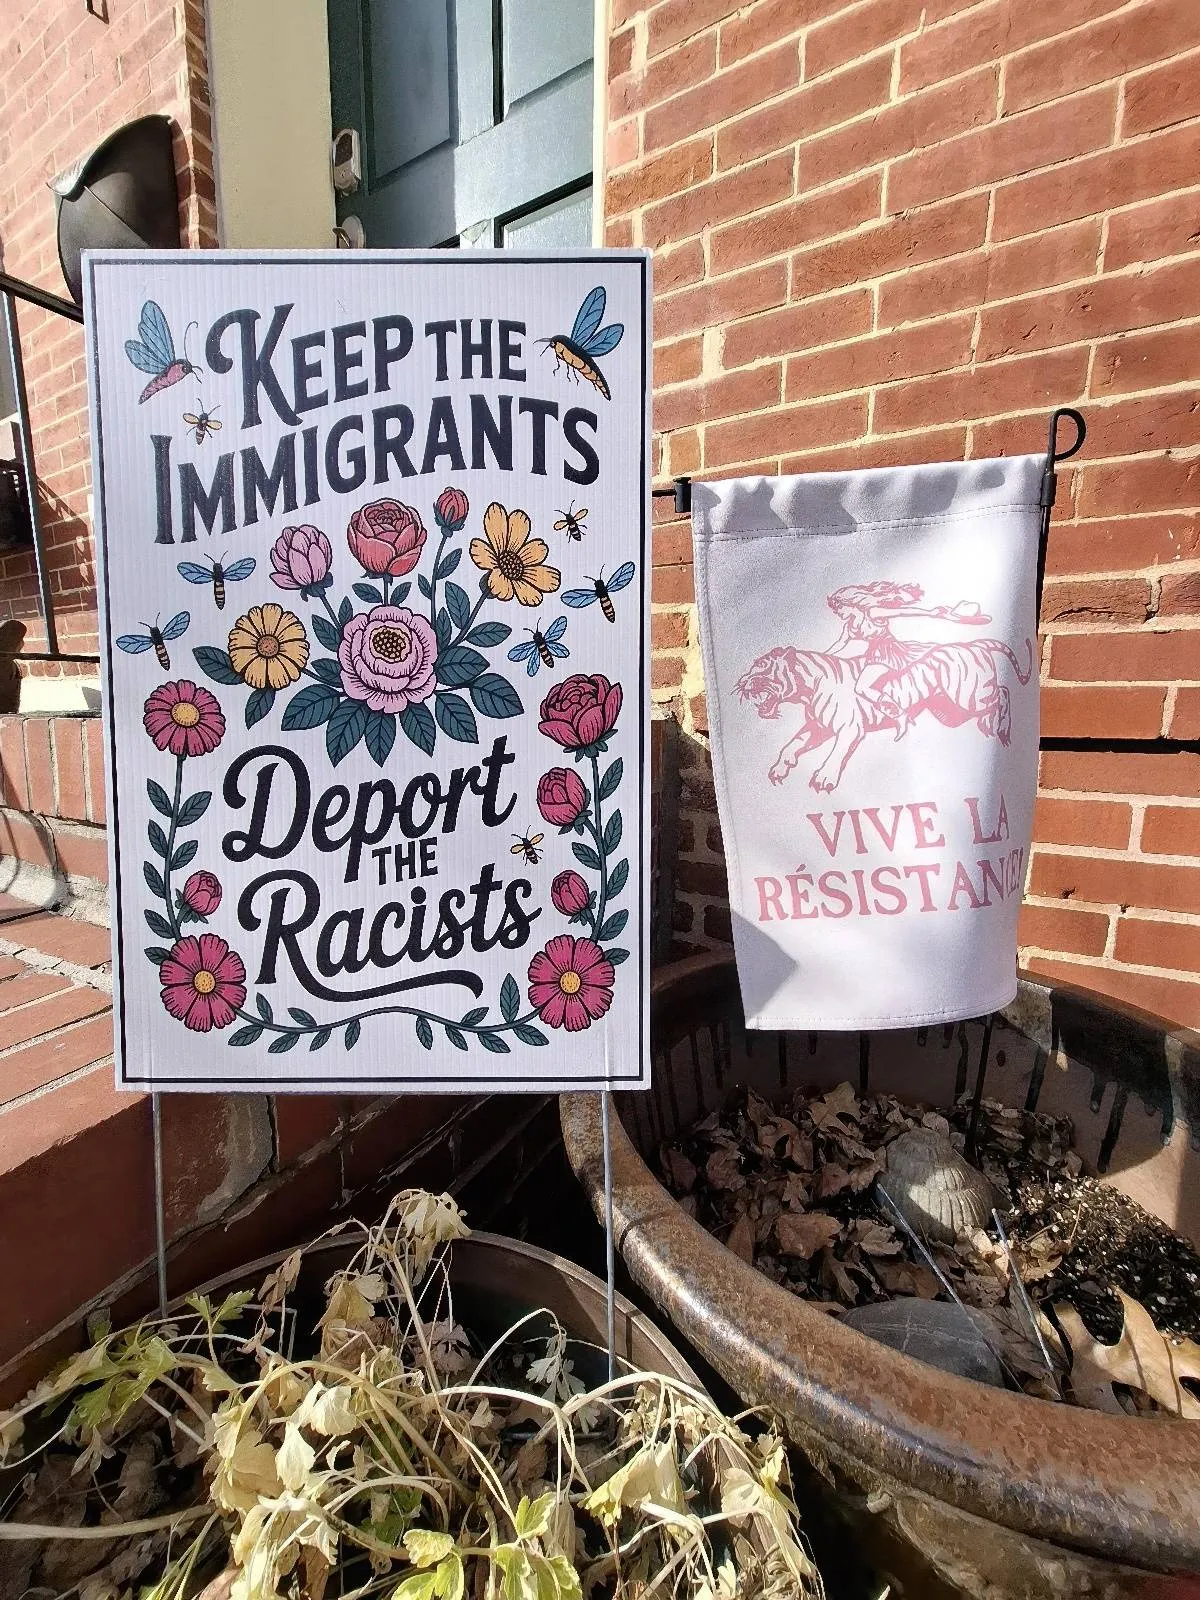 KEEP THE
IMMIGRANTS
Deport
THE
Racists
VIVE LA
RÉSISTANCE!